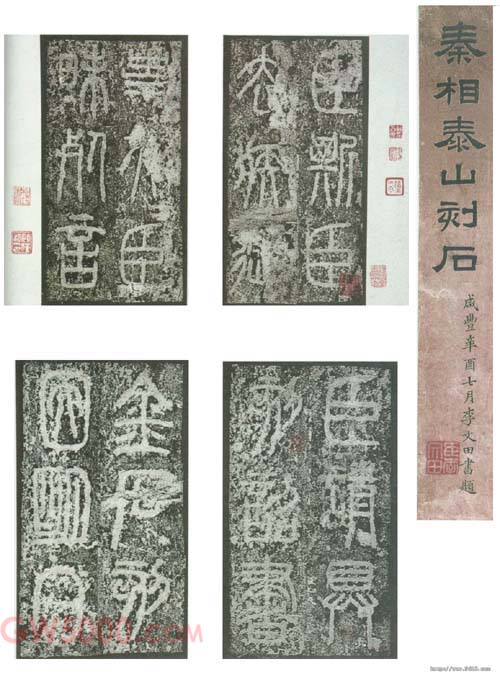 秦相泰山刻石
咸豐辛酉七月李文田書題
臣斯臣
去疾御
史夫臣
昧死言
臣請具
刻詔書
金石刻
因明白
GW5000.com